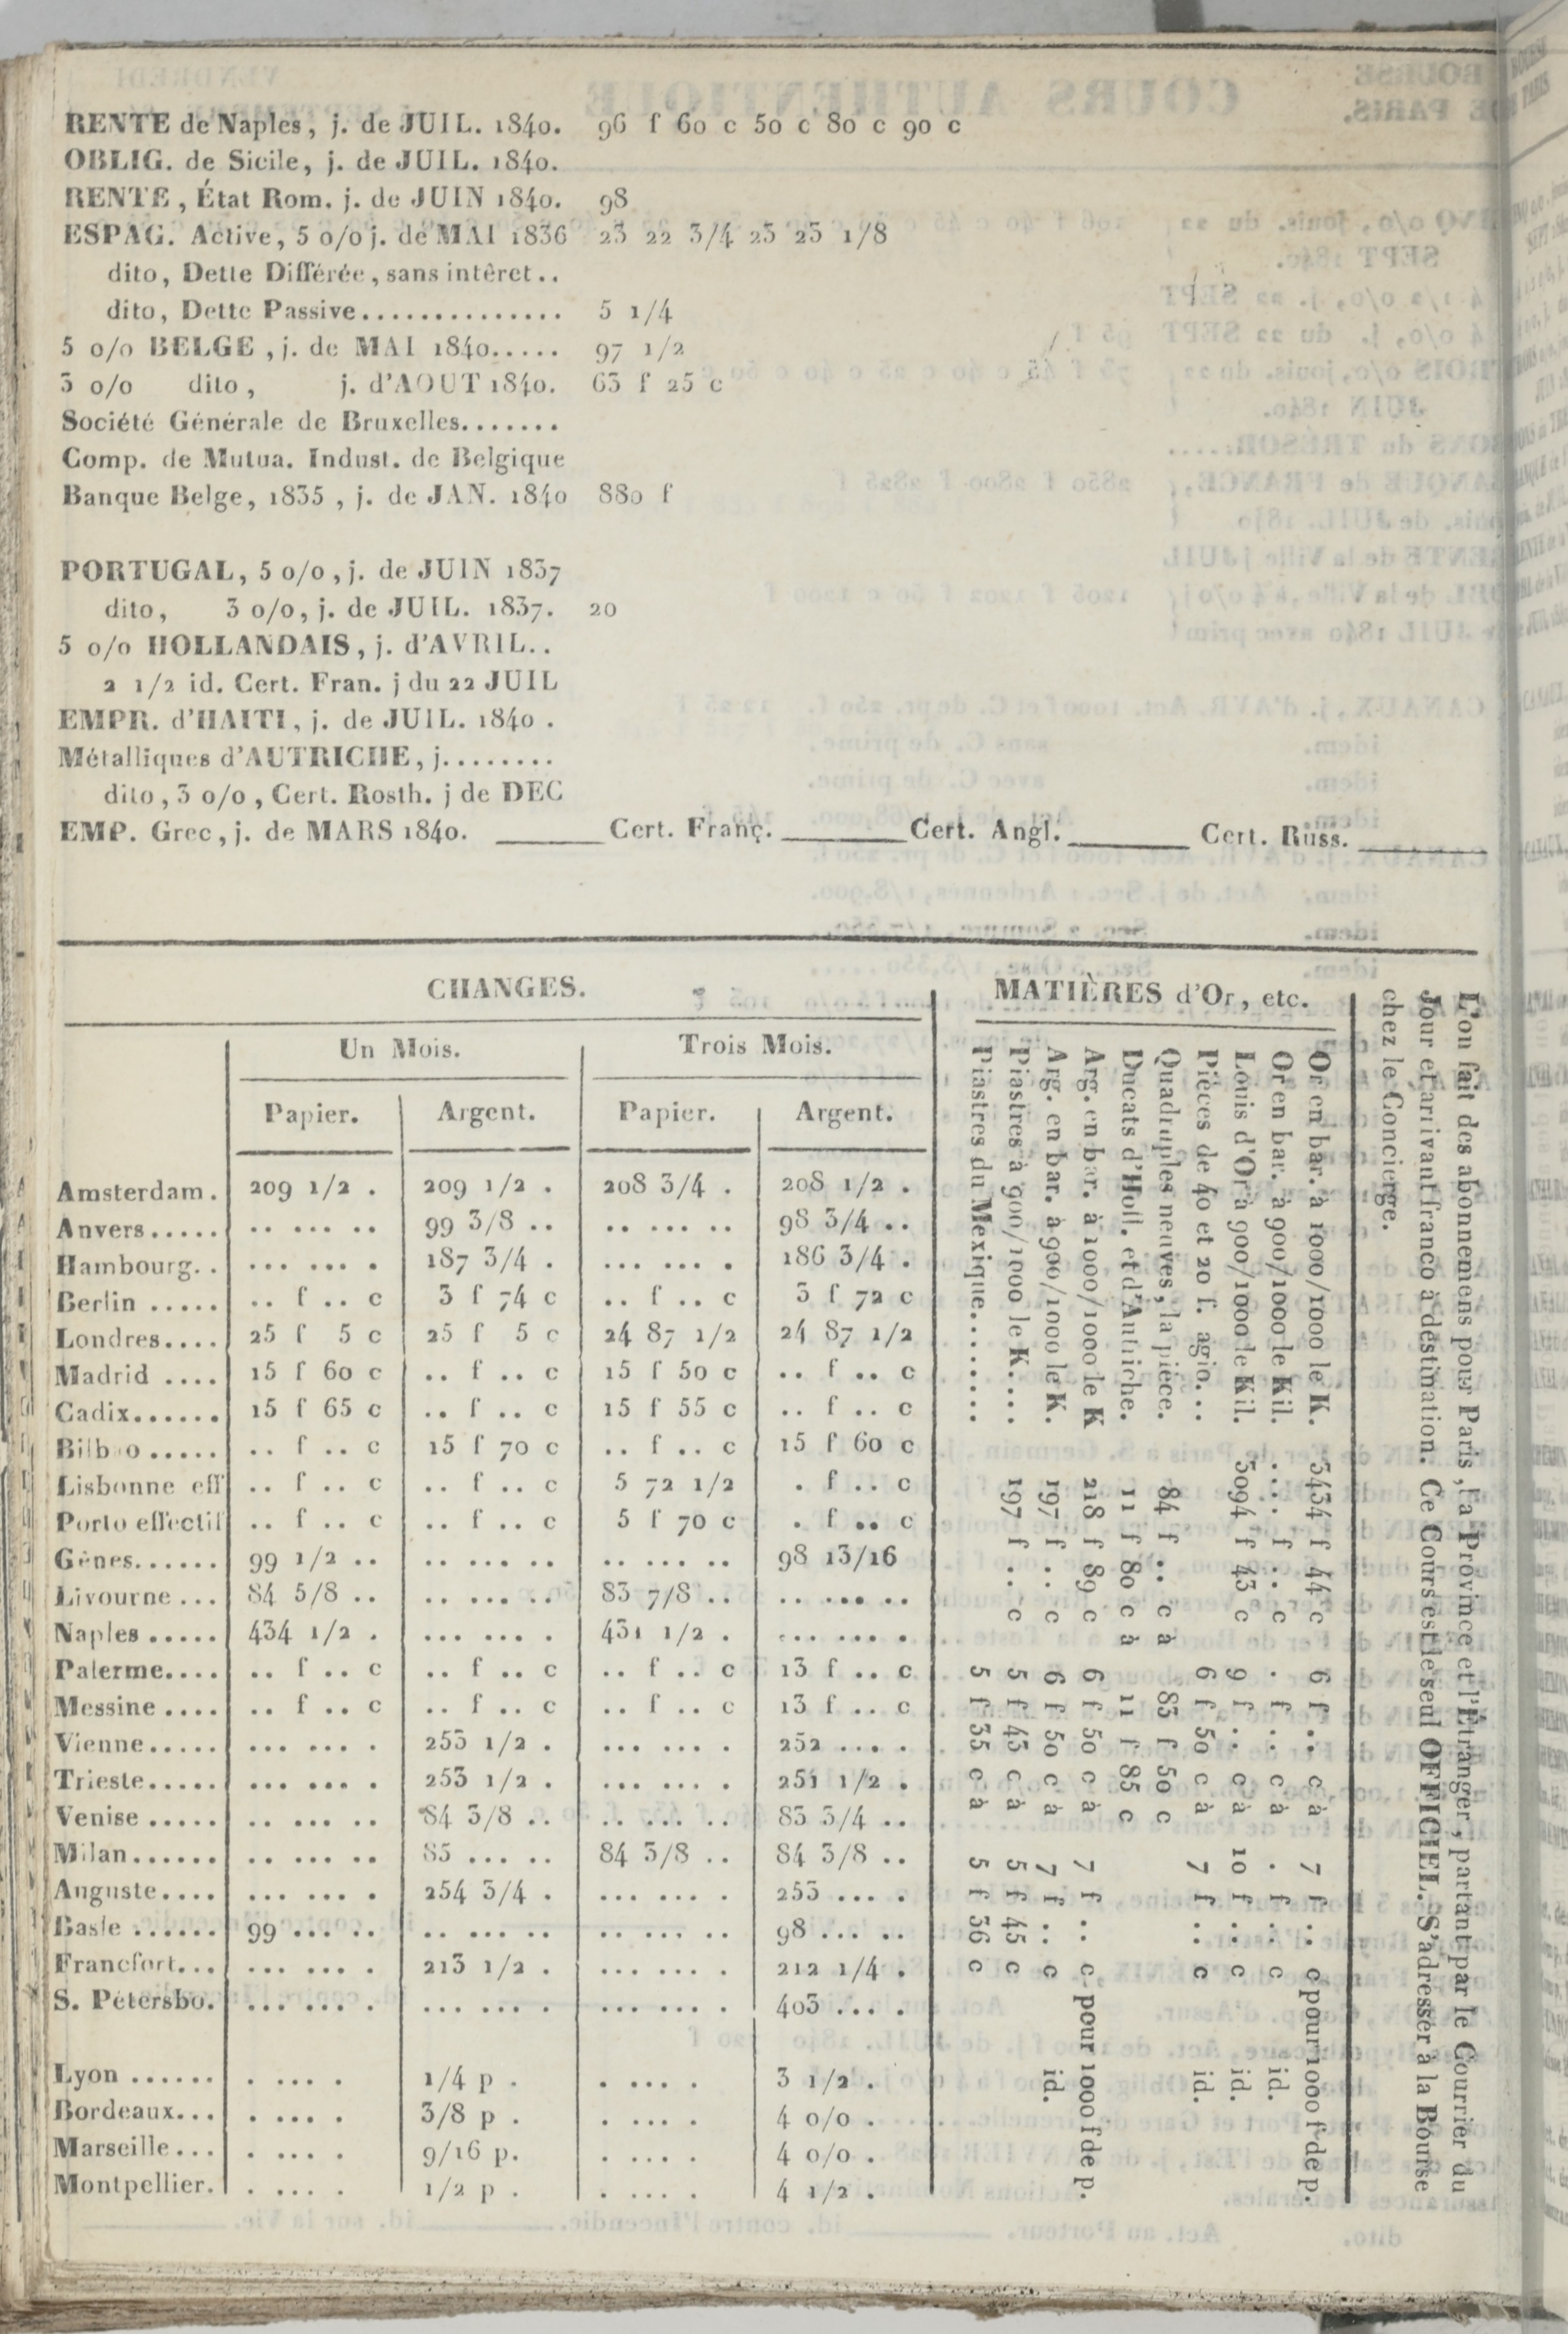 RENTE de Naples, j. de JUIL. 1840. 96 f 60 c 50 c 80 c 90 c
OBLIG. de Sicile, j. de JUIL. 1840.
RENTE, État Rom. j. de JUIN 1840. 98
ESPAG. Active, 5 o/o j. de MAI 1836 23 22 3/4 23 23 1/8
dito, Dette Différée, sans intêret..
dito, Dette Passive.............. 5 1/4
5 o/o BELGE, j. de MAI 1840..... 97 1/2
3 o/o dito, j. d'AOUT 1840. 63 f 25 c
Société Générale de Bruxelles.......
Comp. de Mutua. Indust. de Belgique
Banque Belge, 1835, j. de JAN. 1840 880 f
PORTUGAL, 5 o/o, j. de JUIN 1837
dito, 3 o/o, j. de JUIL. 1837. 20
5 o/o HOLLANDAIS, j. d'AVRIL..
2 1/2 id. Cert. Fran. j du 22 JUIL
EMPR. d'HAITI, j. de JUIL. 1840 .
Métalliques d'AUTRICHE, j........
dito, 3 o/o, Cert. Rosth. j de DEC
EMP. Grec, j. de MARS 1840. ______ Cert. Franç. ______ Cert. Angl. ______ Cert. Russ. ______
CHANGES.
Un Mois. Trois Mois.
Papier. Argent. Papier. Argent.
Amsterdam. 209 1/2 . 209 1/2 . 208 3/4 . 208 1/2 .
Anvers..... .. ... .. 99 3/8 .. .. ... .. 98 3/4 ..
Hambourg.. ... ... . 187 3/4 . ... ... . 186 3/4 .
Berlin ..... .. f .. c 3 f 74 c .. f .. c 3 f 72 c
Londres.... 25 f 5 c 25 f 5 c 24 87 1/2 24 87 1/2
Madrid .... 15 f 60 c .. f .. c 15 f 50 c .. f .. c
Cadix...... 15 f 65 c .. f .. c 15 f 55 c .. f .. c
Bilbao ..... .. f .. c 15 f 70 c .. f .. c 15 f 60 c
Lisbonne eff .. f .. c .. f .. c 5 72 1/2 . f .. c
Porto effectif .. f .. c .. f .. c 5 f 70 c . f .. c
Gênes...... 99 1/2 .. .. ... .. .. ... .. 98 13/16
Livourne ... 84 5/8 .. .. ... .. 83 7/8 .. .. ... ..
Naples ..... 434 1/2 . ... ... . 431 1/2 . ... ... .
Palerme.... .. f .. c .. f .. c .. f .. c 13 f .. c
Messine .... .. f .. c .. f .. c .. f .. c 13 f .. c
Vienne..... ... ... . 253 1/2 . ... ... . 252 ... .
Trieste..... ... ... . 253 1/2 . ... ... . 251 1/2 .
Venise ..... .. ... .. 84 3/8 .. .. ... .. 83 3/4 ..
Milan...... .. ... .. 85 ... .. 84 3/8 .. 84 3/8 ..
Auguste.... ... ... . 254 3/4 . ... ... . 253 ... .
Basle ...... 99 ... .. .. ... .. .. ... .. 98 ... ..
Francfort... ... ... . 213 1/2 . ... ... . 212 1/4 .
S. Pétersbo. ... ... . ... ... . ... ... . 403 ... .
Lyon ...... . ... . 1/4 p . . ... . 3 1/2 .
Bordeaux... . ... . 3/8 p . . ... . 4 o/o .
Marseille ... . ... . 9/16 p. . ... . 4 o/o .
Montpellier. . ... . 1/2 p . . ... . 4 1/2 .
MATIÈRES d'Or, etc.
Or en bar. à 1000/1000 le K. 3434 f 44 c 6 f .. c à 7 f .. c pour 1000 f de p.
Or en bar. à 900/1000 le Kil. .... f .. c . f .. c à . f .. c id.
Louis d'Or à 900/1000 le Kil. 3094 f 43 c 9 f .. c à 10 f .. c id.
Pièces de 40 et 20 f. agio... 6 f 50 c à 7 f .. c id.
Quadruples neuves, la pièce. 84 f .. c à 83 f 50 c
Ducats d'Holl. et d'Autriche. 11 f 80 c à 11 f 85 c
Arg. en bar. à 1000/1000 le K 218 f 89 c 6 f 50 c à 7 f .. c pour 1000 f de p.
Arg. en bar. à 900/1000 le K. 197 f .. c 6 f 50 c à 7 f .. c id.
Piastres à 900/1000 le K.... 197 f .. c 5 f 43 c à 5 f 45 c
Piastres du Mexique........ 5 f 35 c à 5 f 36 c
L'on fait des abonnemens pour Paris, la Province et l'Étranger, partant par le Courrier du
Jour et arrivant franco à destination. Ce Cours est le seul OFFICIEL. S'adresser à la Bourse
chez le Concierge.